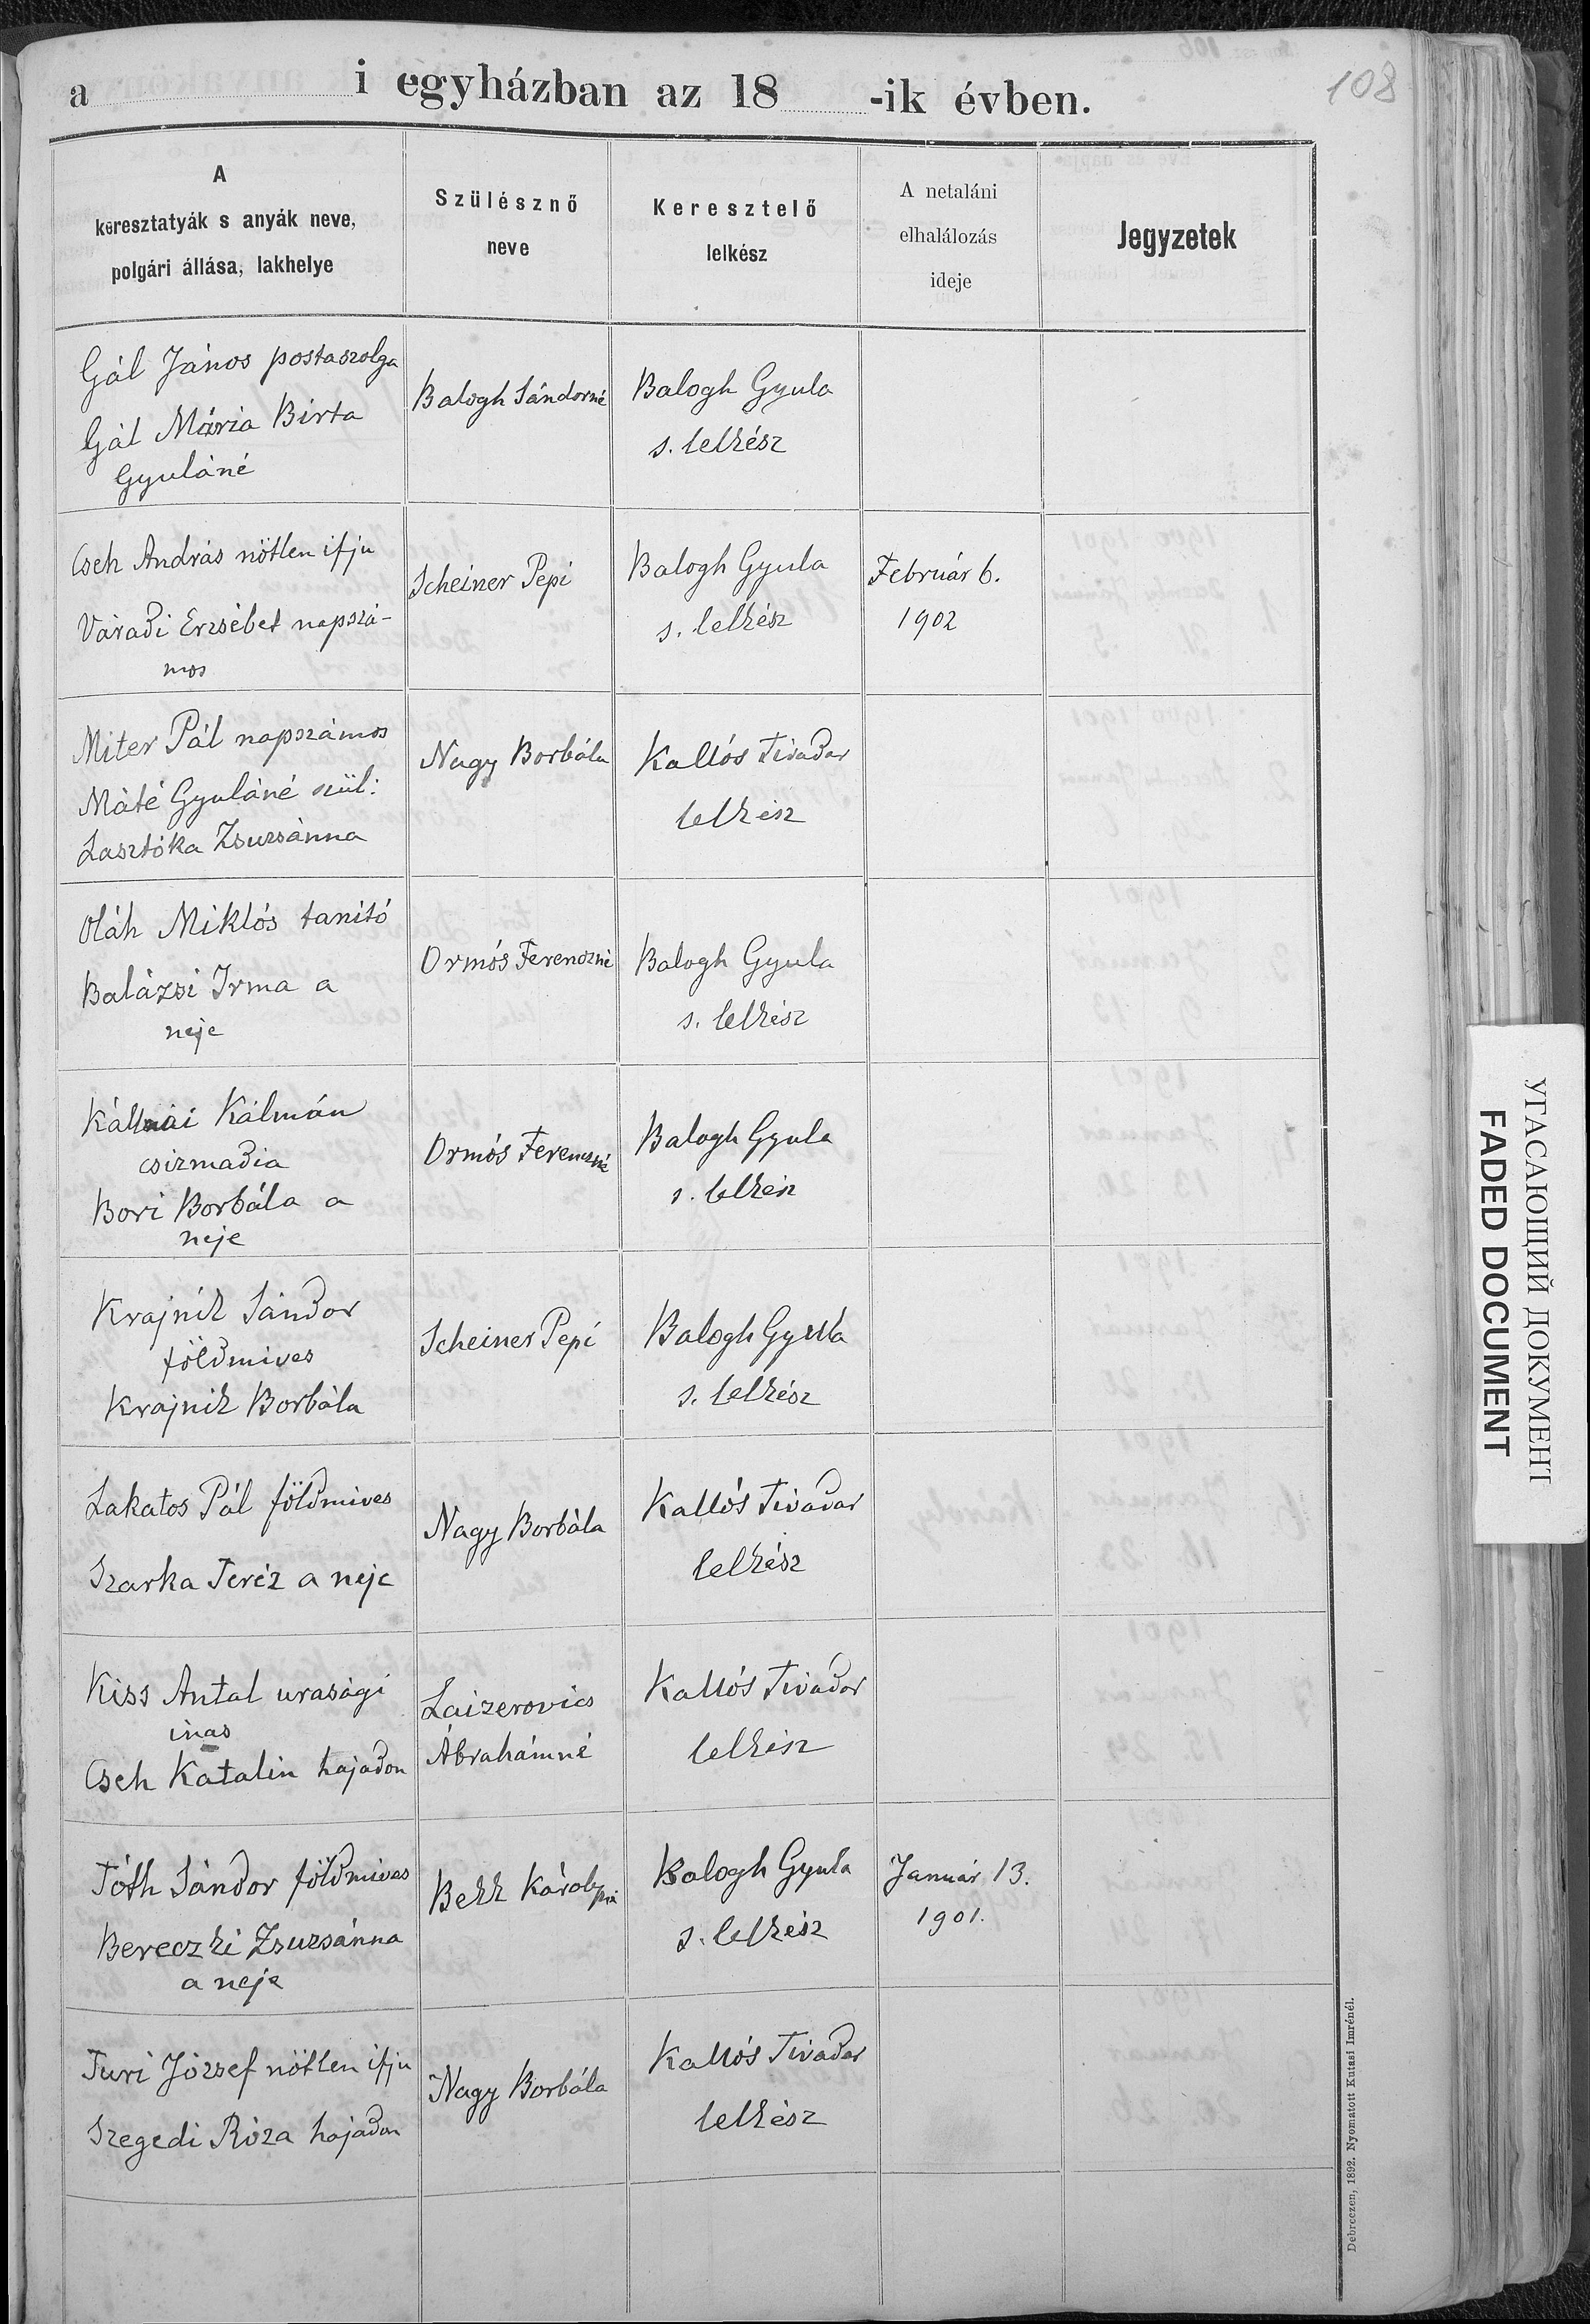 108
a i egyházban az 18 -ik évben.
A
keresztatyák s anyák neve,
polgári állása, lakhelye
Szülésznő
neve
Keresztelő
lelkész
A netaláni
elhalálozás
ideje
Jegyzetek
Gál János postaszolga
Gál Mária Birta
Gyuláné
Balogh Sándorné
Balogh Gyula
s. lelkész
Cseh András nőtlen ifju
Váradi Erzsébet napszá-
mos
Scheiner Pepi
Balogh Gyula
s. lelkész
Február 6.
1902
Miter Pál napszámos
Máté Gyuláné szül:
Lasztóka Zsuzsánna
Nagy Borbála
Kallós Tivadar
lelkész
Oláh Miklós tanitó
Balázsi Irma a
neje
Ormós Ferenczné
Balogh Gyula
s. lelkész
Kálmán
csizmadia
Bori Borbála a
neje
Ormós Ferenczné
Balogh Gyula
s. lelkész
Krajnik Sándor
földmives
Krajnik Borbála
Scheiner Pepi
Balogh Gyula
s. lelkész
Lakatos Pál földmives
Szarka Teréz a neje
Nagy Borbála
Kallós Tivadar
lelkész
Kiss Antal urasági
inas
Cseh Katalin hajadon
Laizerovics
Ábrahámné
Kallós Tivadar
lelkész
Tóth Sándor földmives
Bereczki Zsuzsánna
a neje
Bekk Károlyné
Balogh Gyula
s. lelkész
Január 13.
1901.
Turi József nőtlen ifju
Szegedi Róza hajadon
Nagy Borbála
Kallós Tivadar
lelkész
Debreczen, 1892. Nyomatott Kutasi Imrénél.
УГАСАЮЩИЙ ДОКУМЕНТ
FADED DOCUMENT